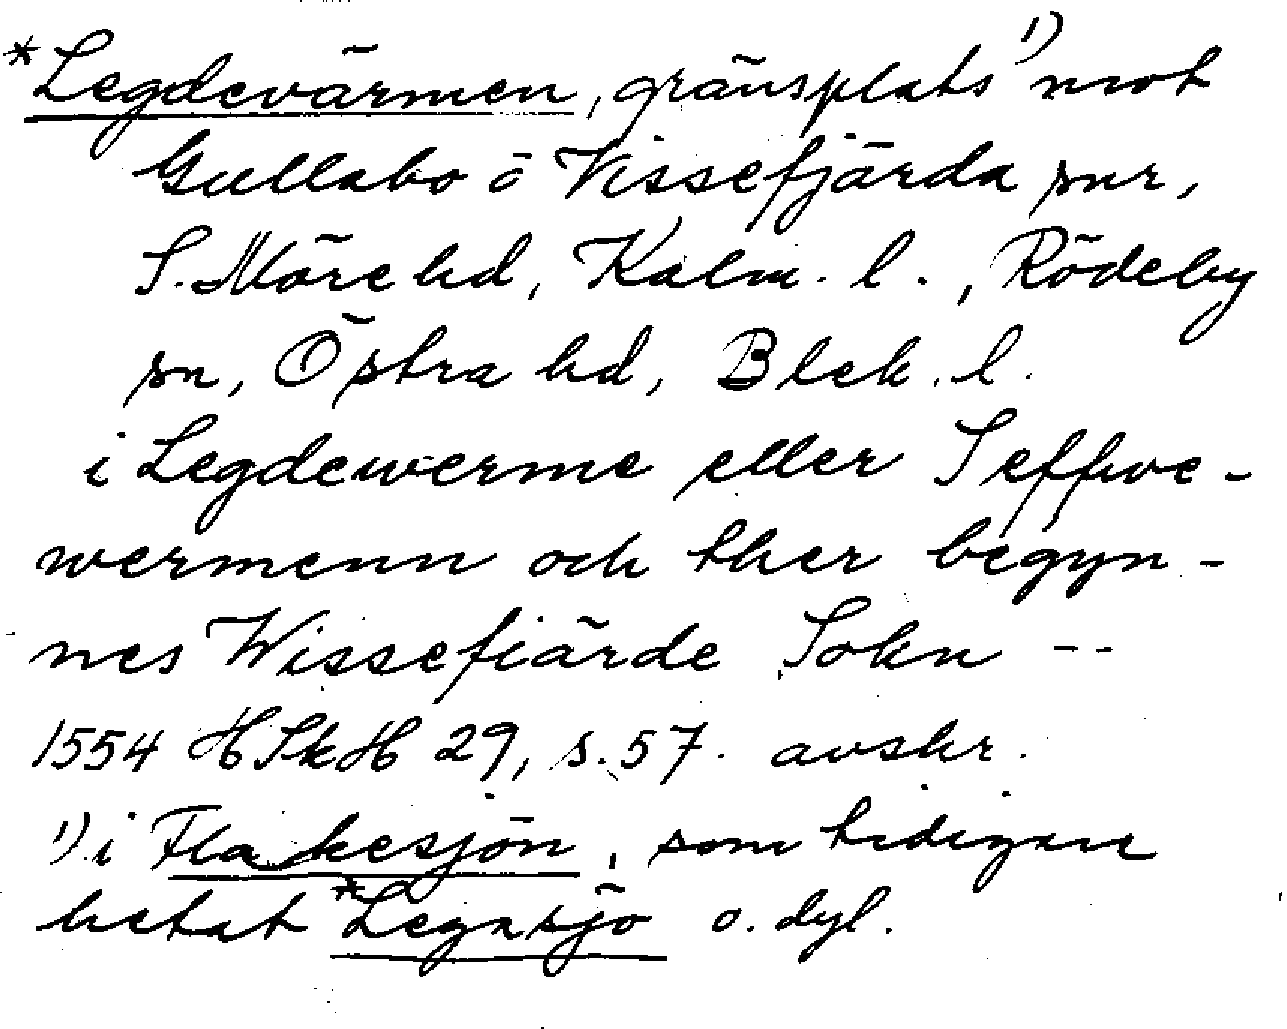 *Legdevärmen, gränsplats ¹) mot
Gullabo o Vissefjärda snr,
S. Möre hd, Kalm. l., Rödeby
sn, Östra hd, Blek. l.
i Legdewerme eller Seffwe-
wermenn och ther begyn-
nes Wissefiärde Sokn --
1554 HSkH 29, s. 57. avskr.
¹) i Flakesjön, som tidigare
hetat *Legnsjö o. dyl.